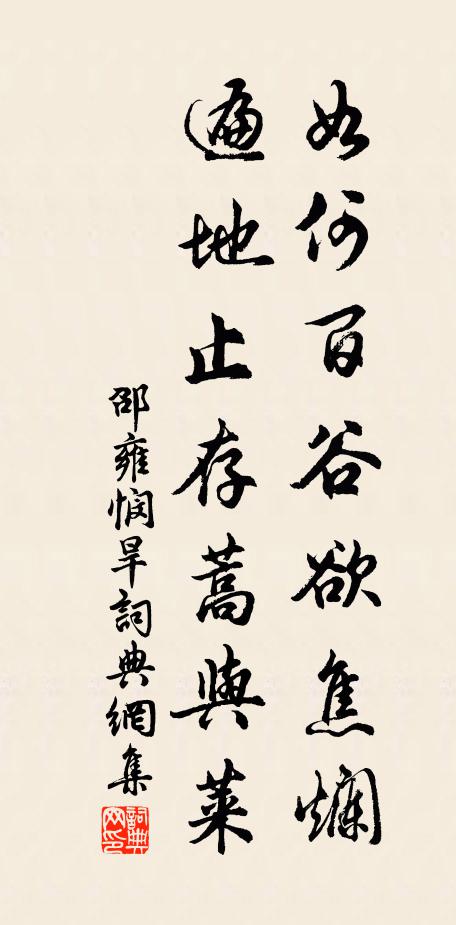 如何百谷欲焦爛
遍地止存蒿與萊
邵雍憫旱詞典網集
詞典网印